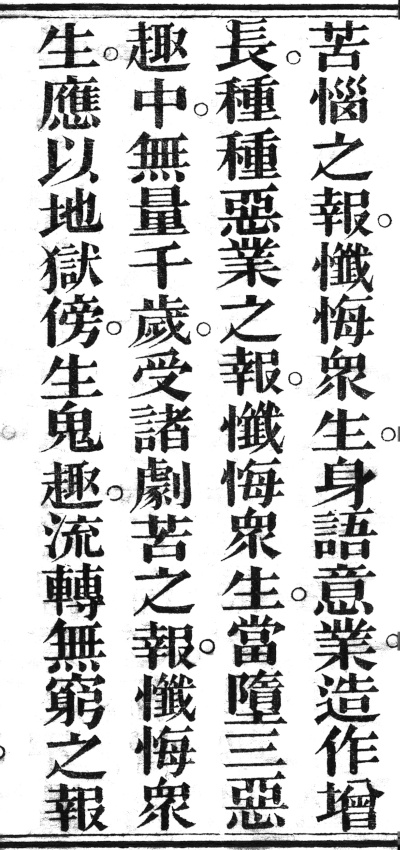 苦惱之報。懺悔衆生。身語意業。造作增
長。種種惡業之報。懺悔衆生。當墮三惡
趣中。無量千歲。受諸劇苦之報。懺悔衆
生。應以地獄傍。生鬼趣。流轉無窮之報